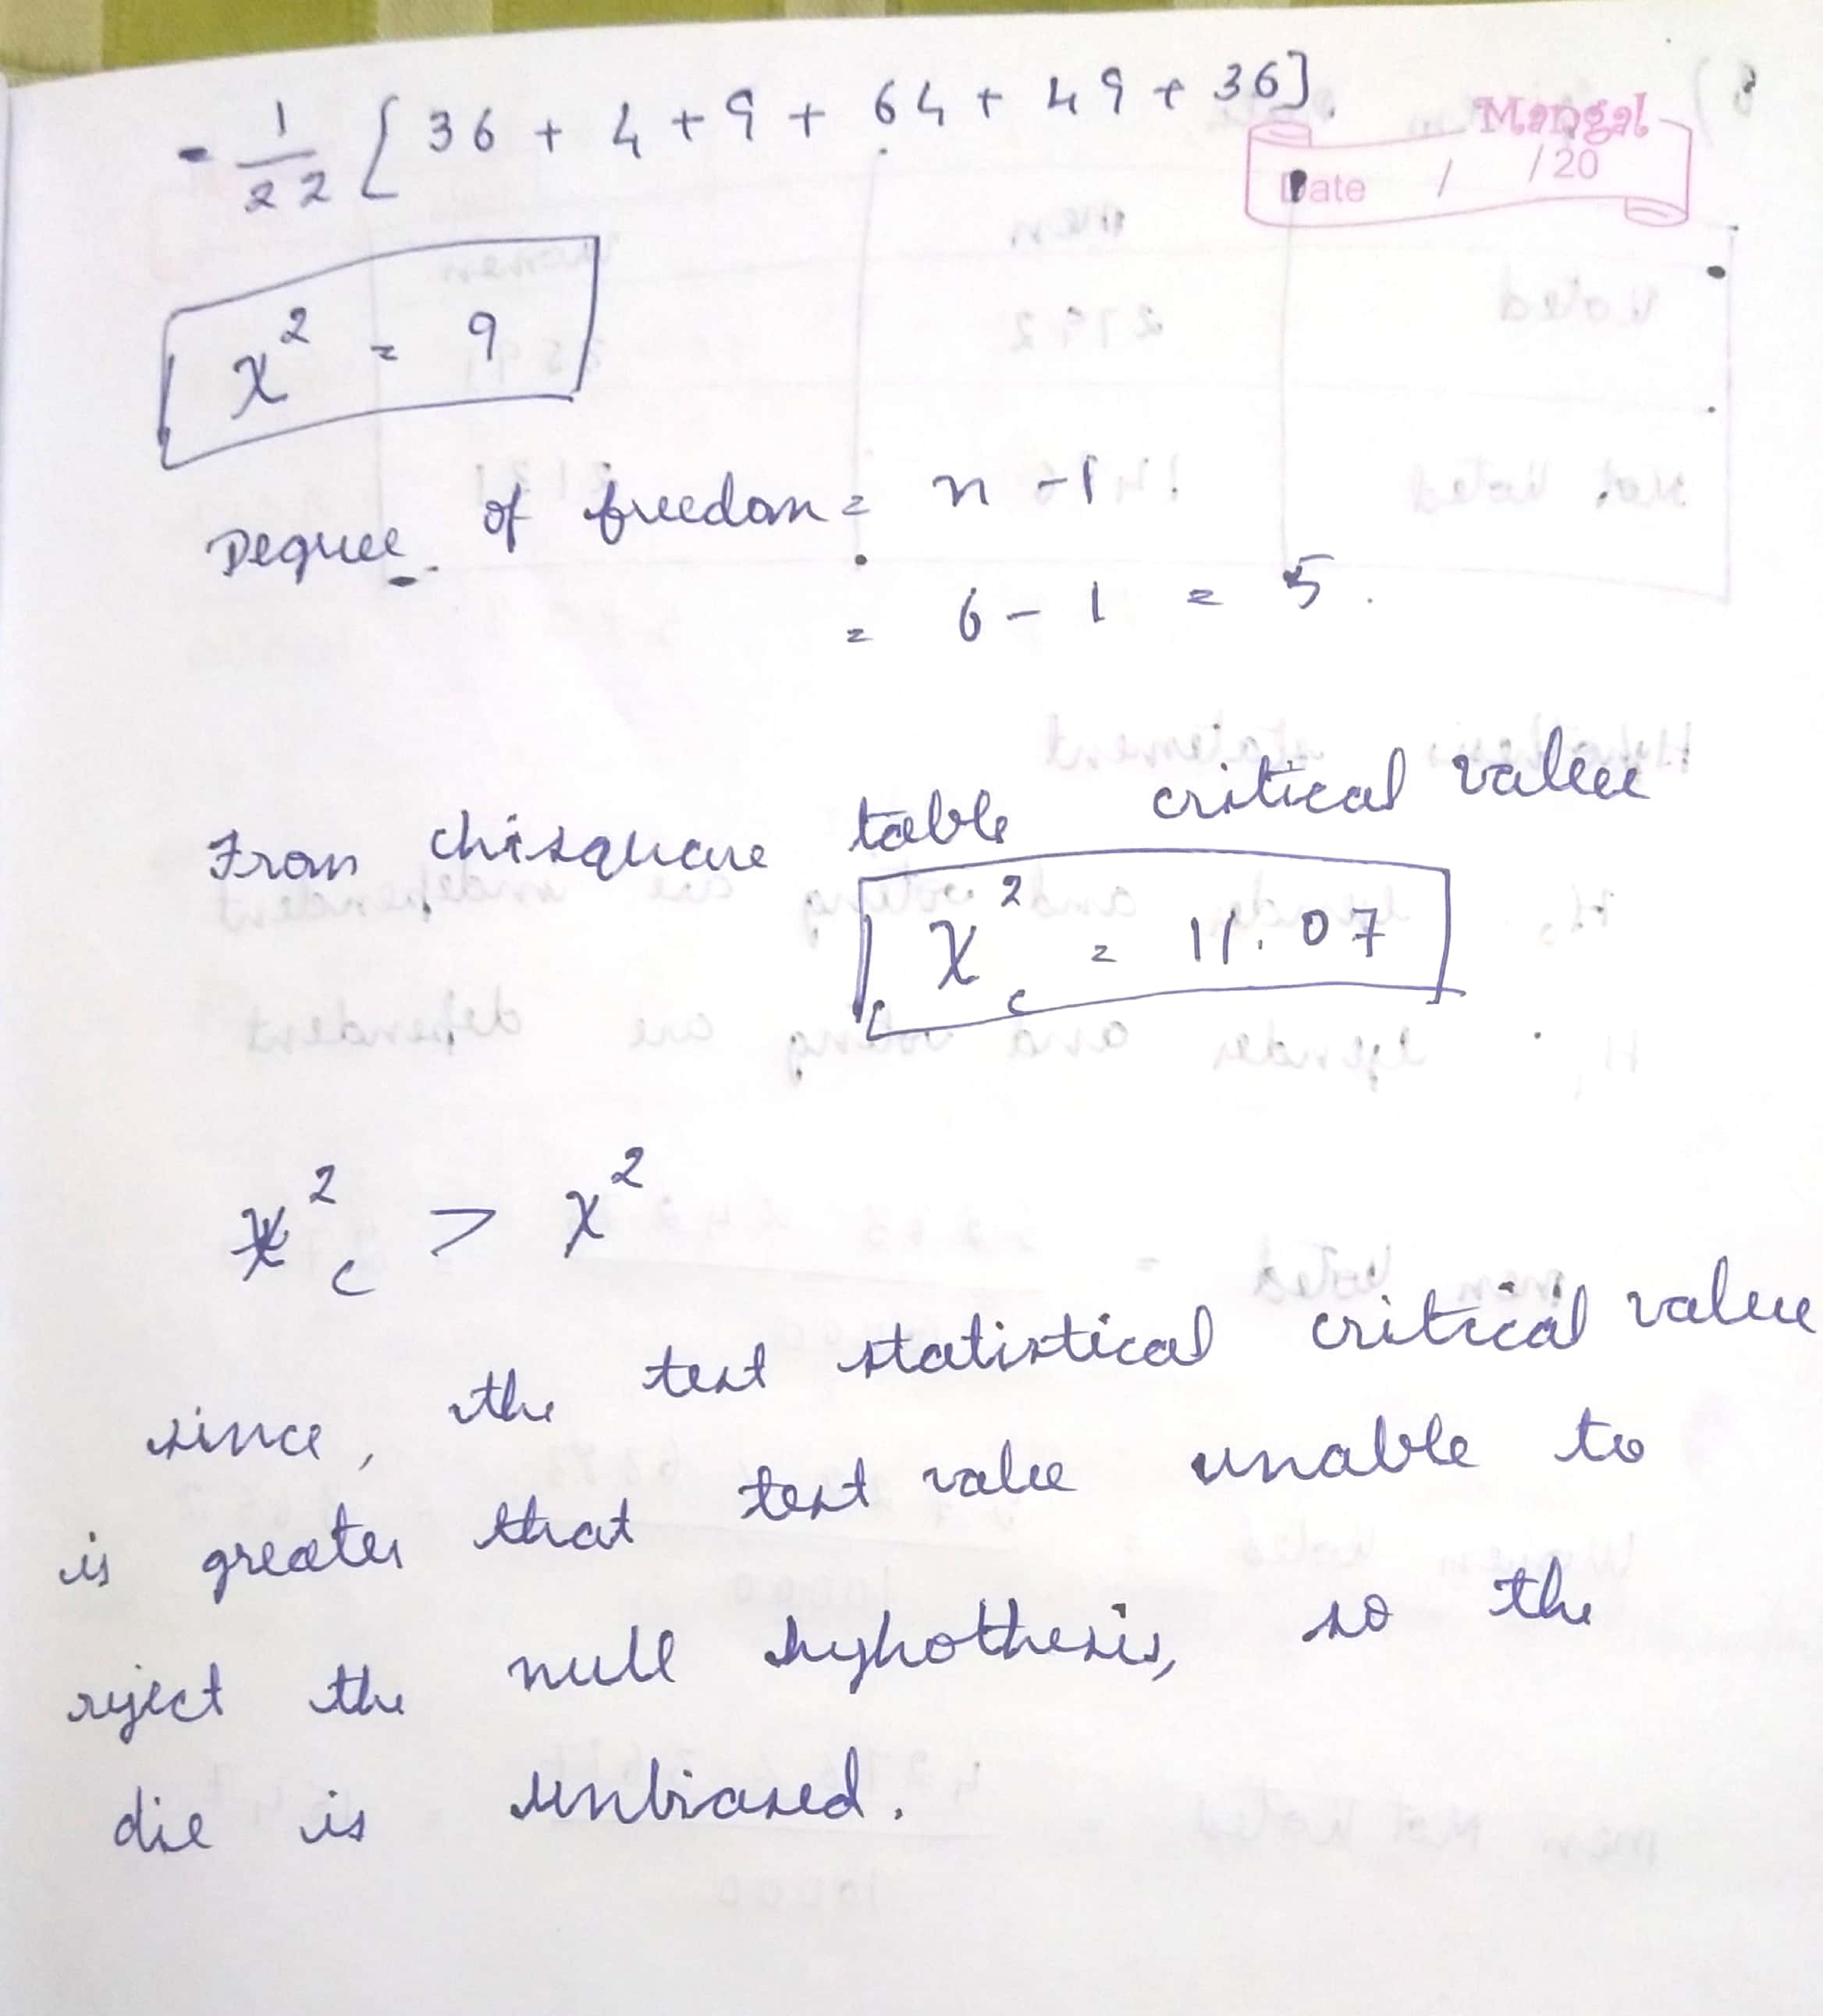 = 1/22 [ 36 + 4 + 9 + 64 + 49 + 36 ]
Mangal
Date / /20
χ² = 9
Degree of freedom = n - 1
= 6 - 1 = 5.
From chisquare table critical value
χ²c = 11.07
χ²c > χ²
since, the test statistical critical value
is greater that test value unable to
reject the null hyhothesis, so the
die is unbiased.